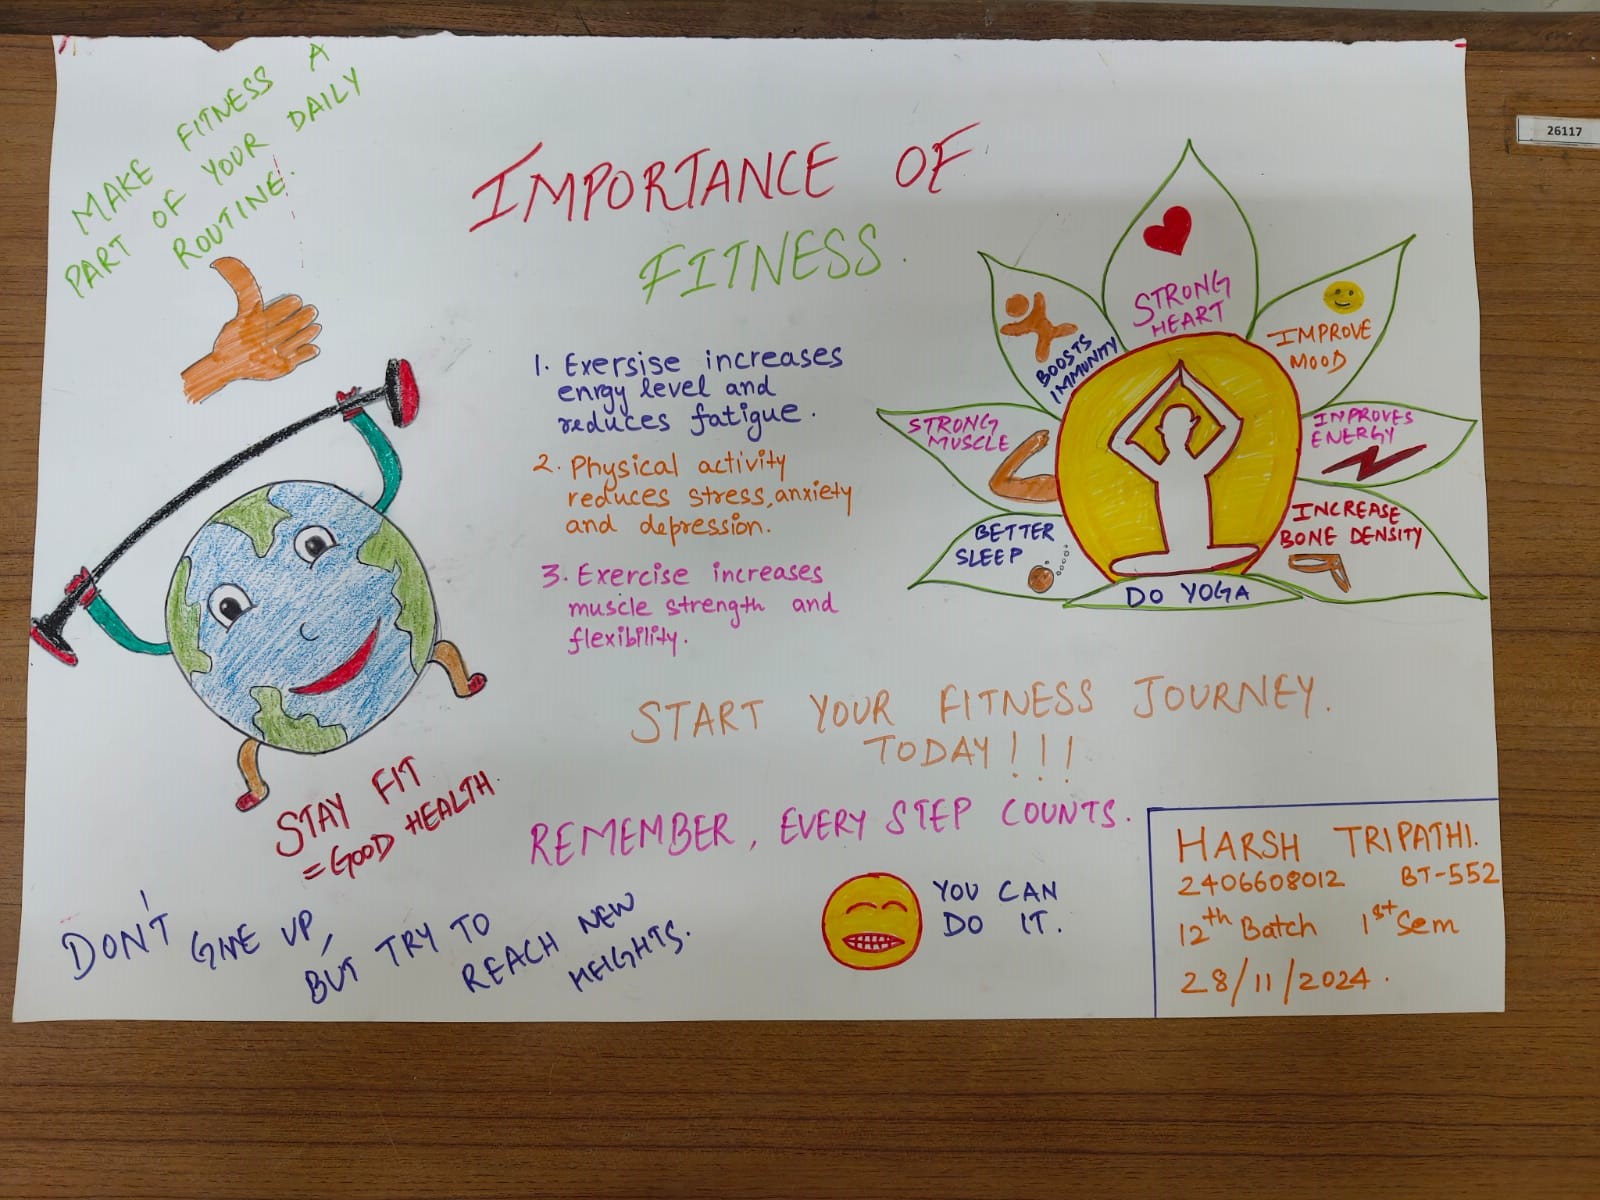 MAKE FITNESS A
PART OF YOUR DAILY
ROUTINE.
IMPORTANCE OF
FITNESS.
1. Exersise increases
enrgy level and
reduces fatigue.
2. Physical activity
reduces stress, anxiety
and depression.
3. Exercise increases
muscle strength and
flexibility.
STRONG
HEART
BOOSTS
IMMUNITY
IMPROVE
MOOD
STRONG
MUSCLE
IMPROVES
ENERGY
BETTER
SLEEP
INCREASE
BONE DENSITY
DO YOGA
START YOUR FITNESS JOURNEY.
TODAY!!!
STAY FIT
=GOOD HEALTH.
REMEMBER, EVERY STEP COUNTS.
DON'T GIVE UP,
BUT TRY TO
REACH NEW
HEIGHTS.
YOU CAN
DO IT.
HARSH TRIPATHI.
2406608012 BT-552
12th Batch 1st Sem
28/11/2024.
26117